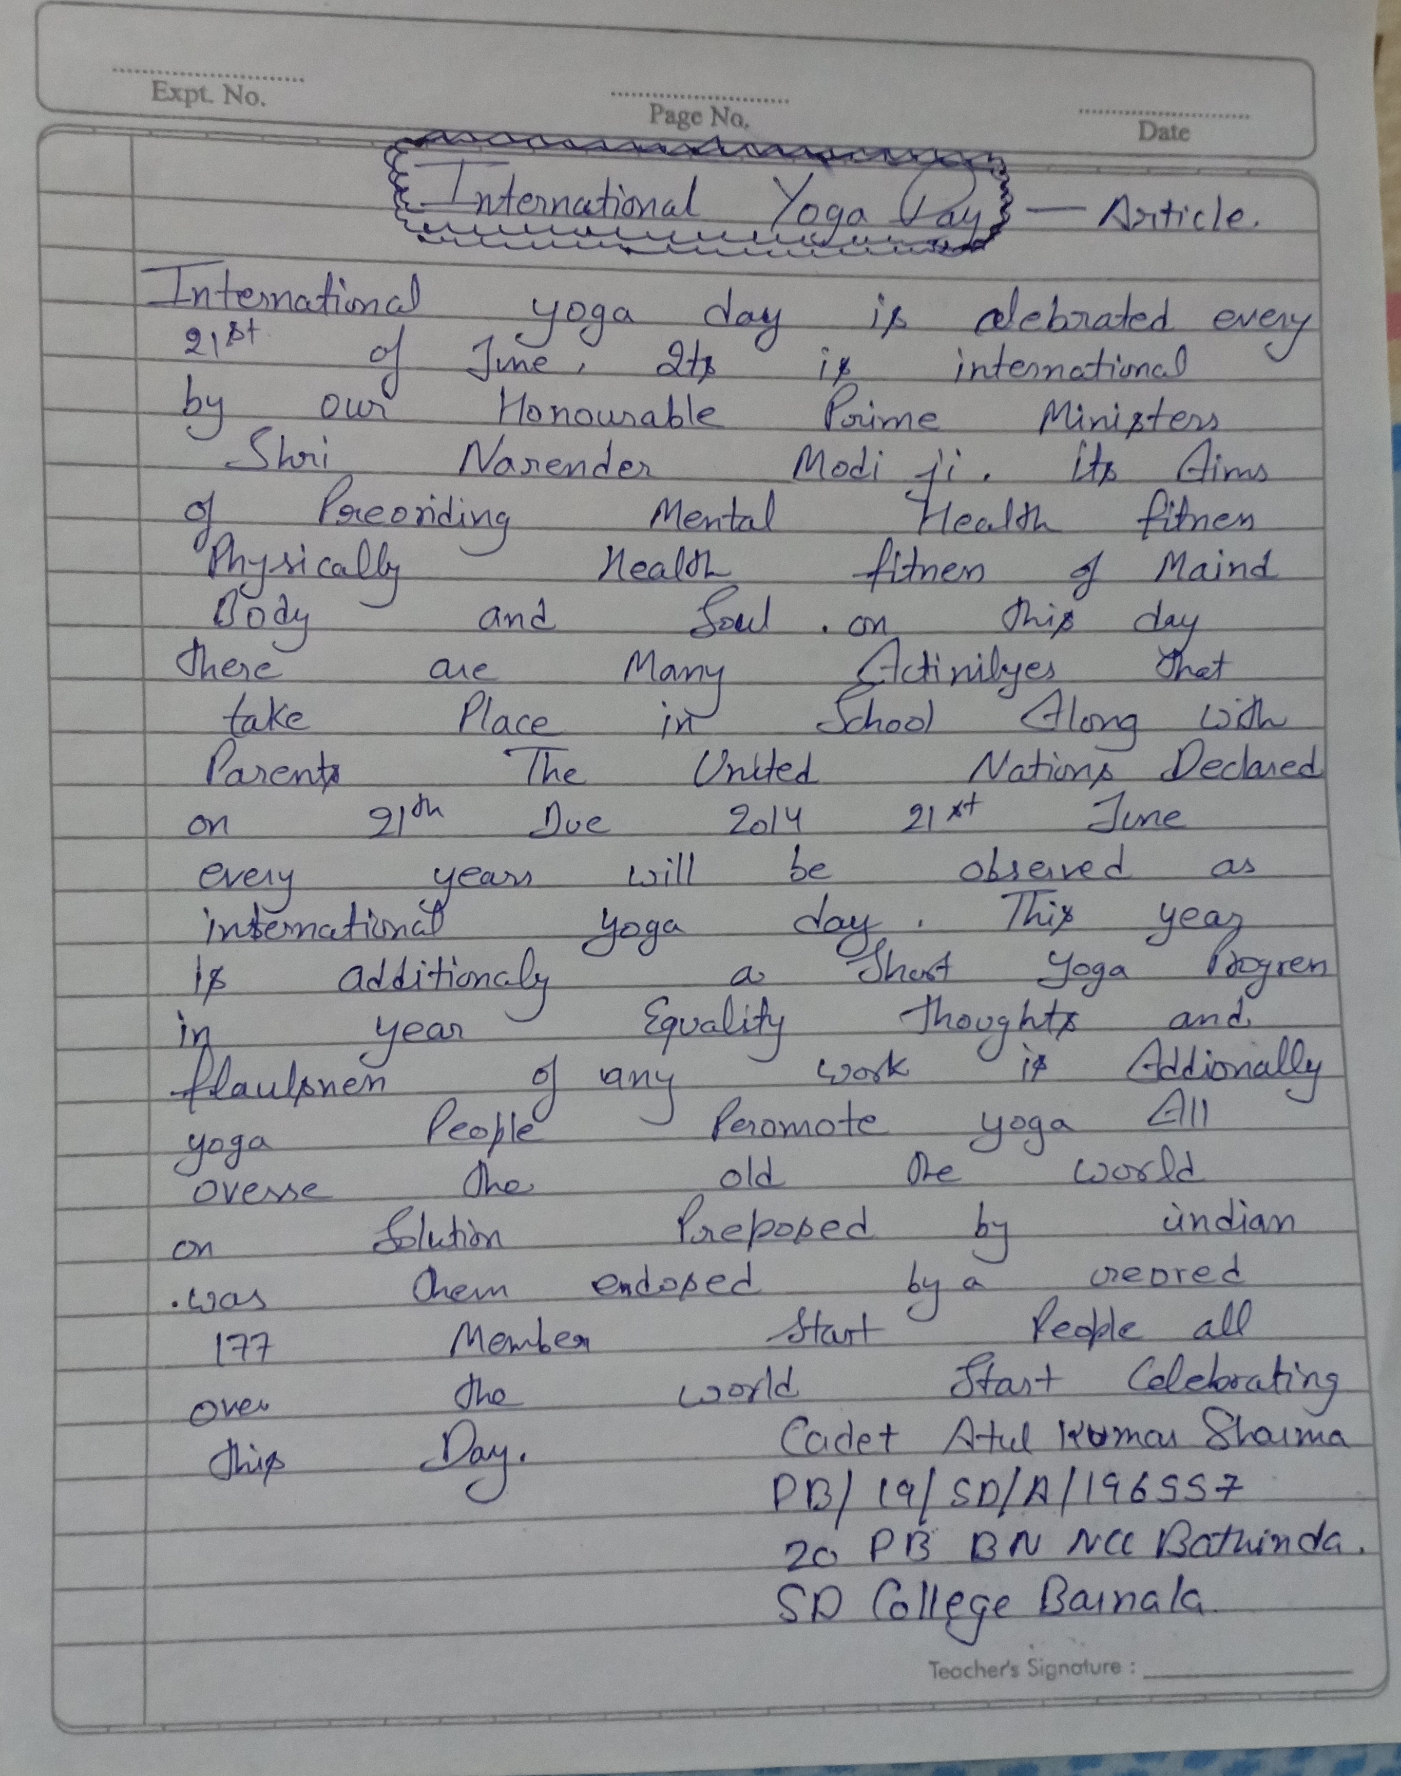 Expt. No.
Page No.
Date
International Yoga Day — Article.
International yoga day is celebrated every
21st of June, Its is international
by our Honourable Prime Ministers
Shri Narender Modi ji. its Aims
of Mental Health fitness
Physically Health fitness of Maind
Body and Soul. on this day
there are Many that
take Place in School Along with
Parents The United Nations Declared
on 21th 2014 21st June
every years will be observed as
international yoga day. This year
is additionaly a Short yoga
in year Equality Thoughts and
of any work is Addionally
yoga People Peromote yoga All
overse the old the world
on Solution Preposed by indian
.was them endosed by a
177 Member Start People all
over the world Start Celebrating
this Day.
Cadet Atul Kumar Sharma
PB/19/SD/A/196557
20 PB BN NCC Bathinda.
SD College Barnala
Teacher's Signature :